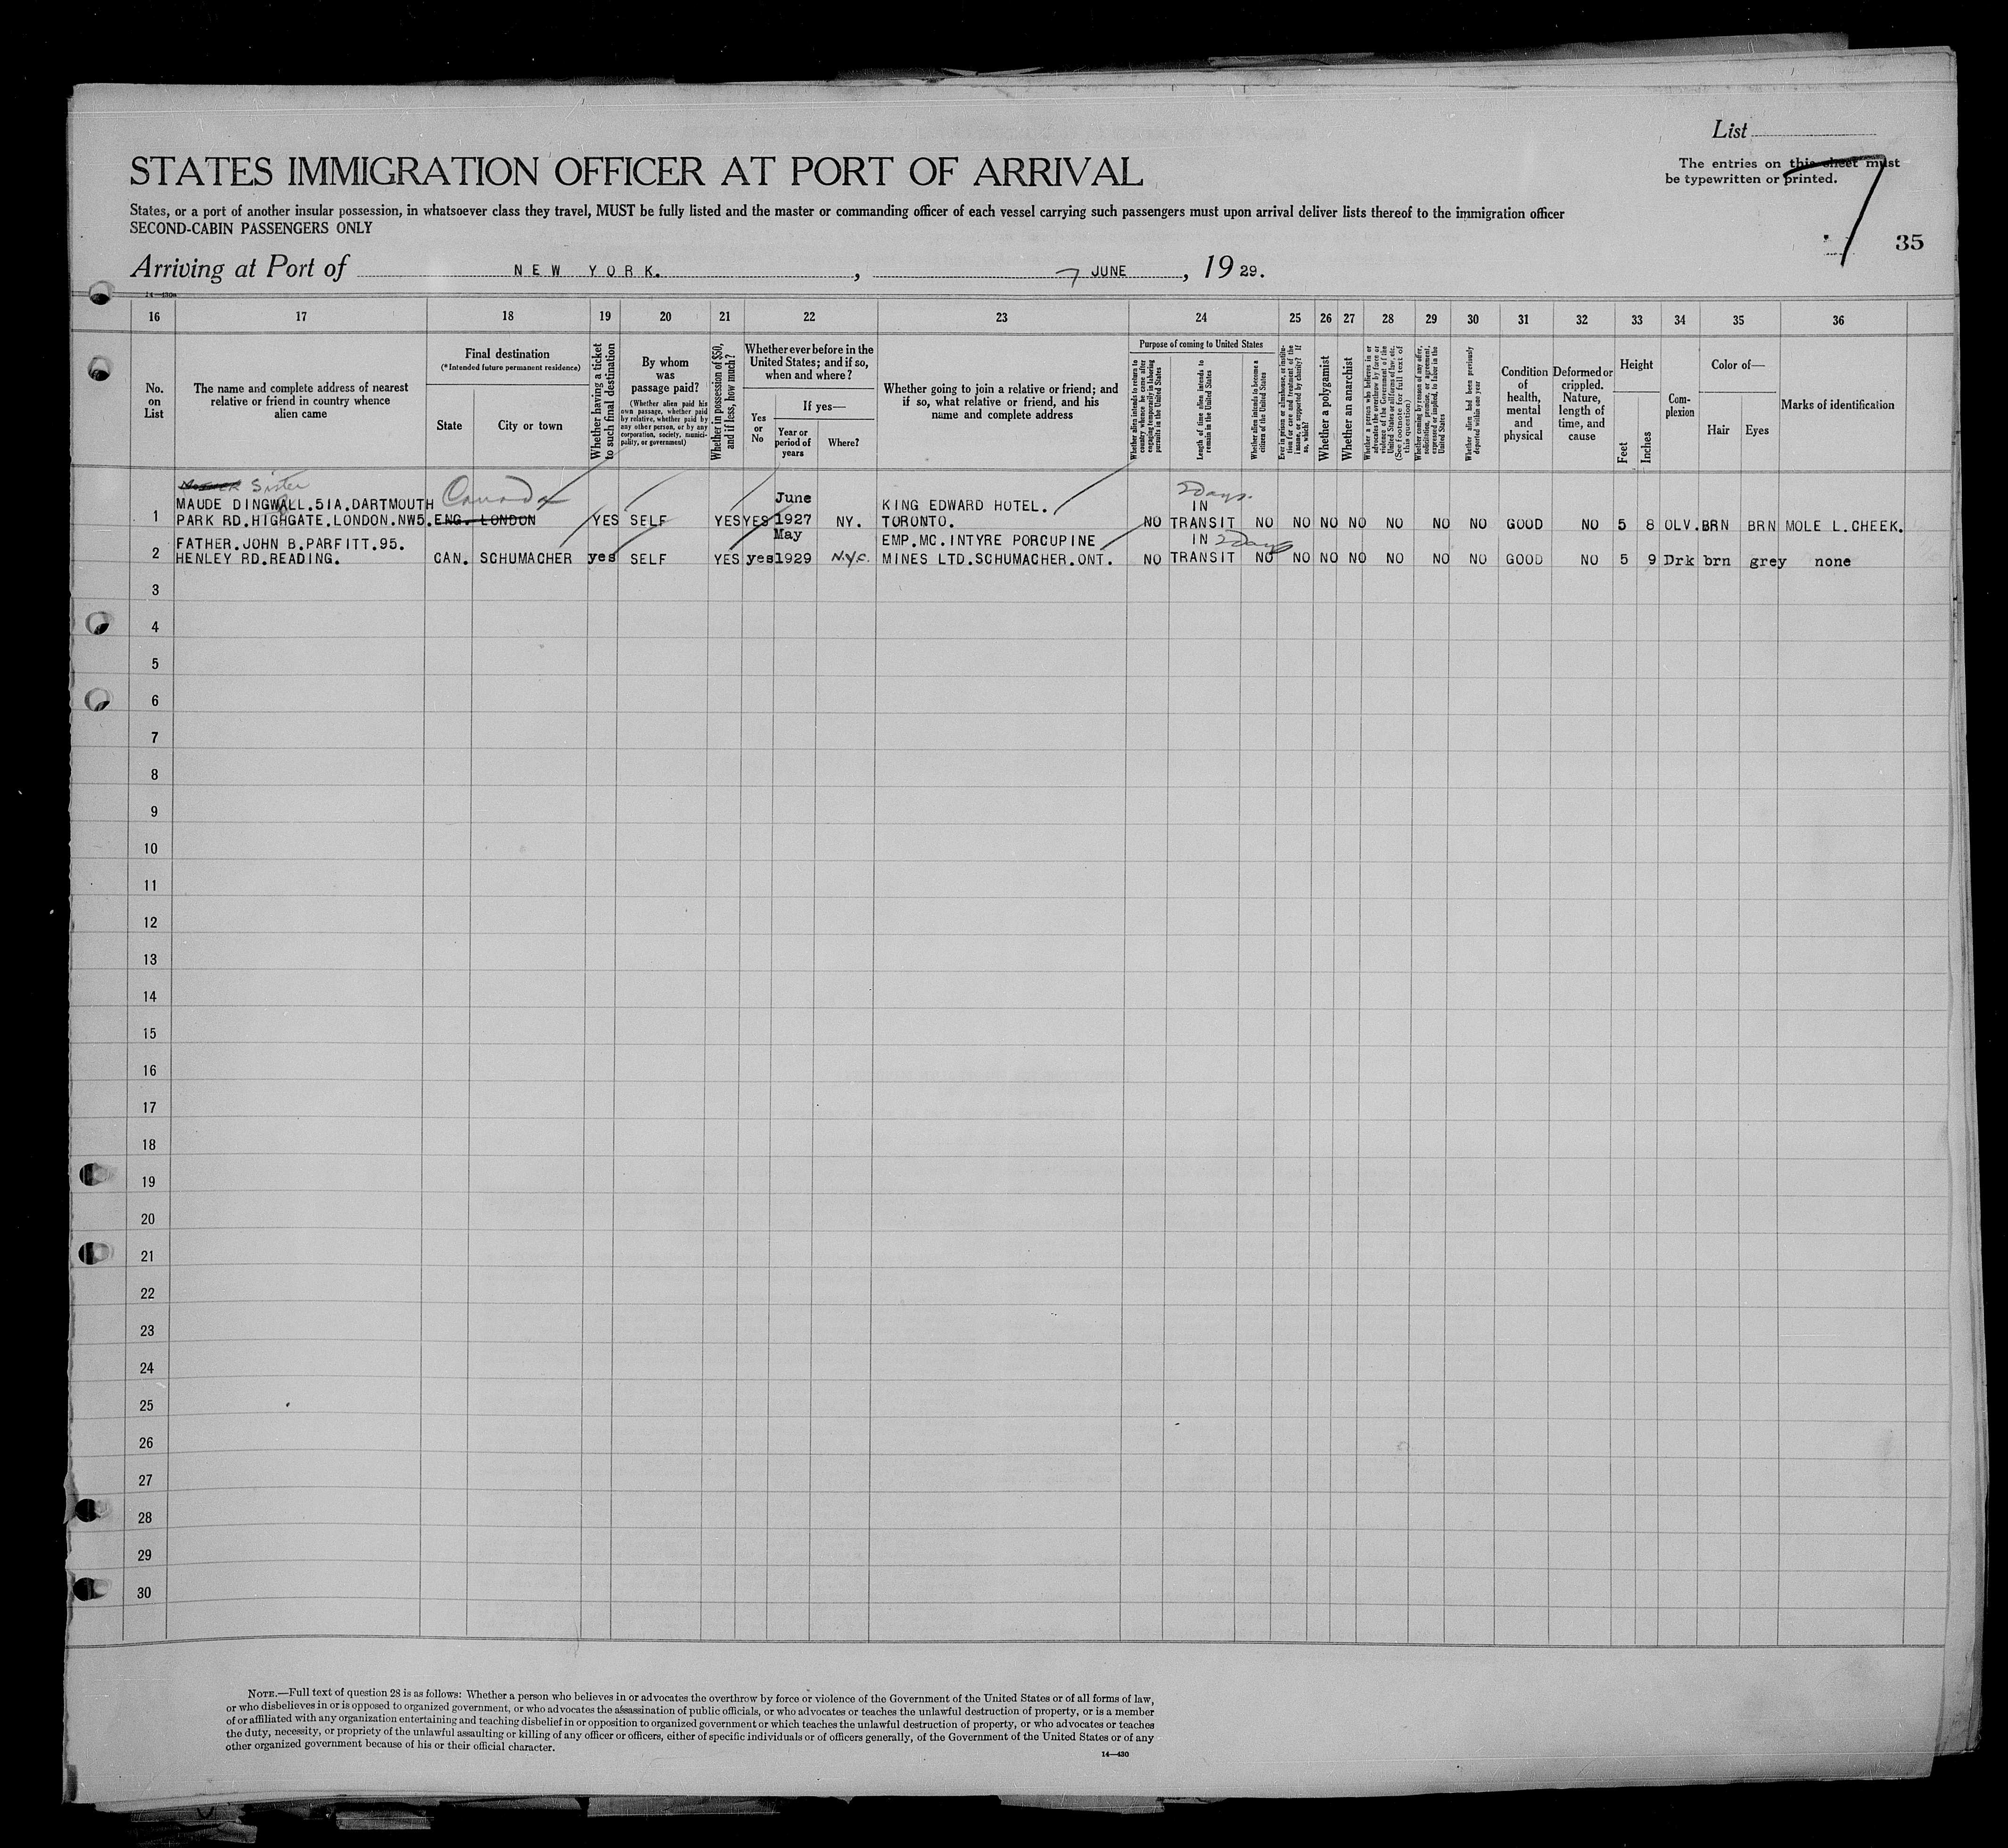 List
STATES IMMIGRATION OFFICER AT PORT OF ARRIVAL
The entries on this sheet must
be typewritten or printed.
7
States, or a port of another insular possession, in whatsoever class they travel, MUST be fully listed and the master or commanding officer of each vessel carrying such passengers must upon arrival deliver lists thereof to the immigration officer
SECOND-CABIN PASSENGERS ONLY
35
Arriving at Port of NEW YORK. , 7 JUNE , 19 29.
14—430a
16 17 18 19 20 21 22 23 24 25 26 27 28 29 30 31 32 33 34 35 36
No. on List
The name and complete address of nearest relative or friend in country whence alien came
Final destination
(*Intended future permanent residence)
State
City or town
Whether having a ticket to such final destination
By whom was passage paid?
(Whether alien paid his own passage, whether paid by relative, whether paid by any other person, or by any corporation, society, municipality, or government)
Whether in possession of $50, and if less, how much?
Whether ever before in the United States; and if so, when and where?
Yes or No
If yes—
Year or period of years
Where?
Whether going to join a relative or friend; and if so, what relative or friend, and his name and complete address
Purpose of coming to United States
Whether alien intends to return to country whence he came after engaging temporarily in laboring pursuits in the United States
Length of time alien intends to remain in the United States
Whether alien intends to become a citizen of the United States
Ever in prison or almshouse, or institution for care and treatment of the insane, or supported by charity? If so, which?
Whether a polygamist
Whether an anarchist
Whether a person who believes in or advocates the overthrow by force or violence of the Government of the United States or all forms of law, etc. (See footnote for full text of this question)
Whether coming by reason of any offer, solicitation, promise, or agreement, expressed or implied, to labor in the United States
Whether alien had been previously deported within one year
Condition of health, mental and physical
Deformed or crippled. Nature, length of time, and cause
Height
Feet
Inches
Complexion
Color of—
Hair
Eyes
Marks of identification
Sister
MAUDE DINGWALL.51A.DARTMOUTH Canada June KING EDWARD HOTEL. 2 Days. IN
1 PARK RD.HIGHGATE.LONDON.NW5. ENG. LONDON YES SELF YES YES 1927 NY. TORONTO. NO TRANSIT NO NO NO NO NO NO NO GOOD NO 5 8 OLV. BRN BRN MOLE L.CHEEK.
FATHER.JOHN B.PARFITT.95. May EMP.MC.INTYRE PORCUPINE IN 2 Days
2 HENLEY RD.READING. CAN. SCHUMACHER yes SELF YES yes 1929 N.Y.C. MINES LTD.SCHUMACHER.ONT. NO TRANSIT NO NO NO NO NO NO NO GOOD NO 5 9 Drk brn grey none
3
4
5
6
7
8
9
10
11
12
13
14
15
16
17
18
19
20
21
22
23
24
25
26
27
28
29
30
NOTE.—Full text of question 28 is as follows: Whether a person who believes in or advocates the overthrow by force or violence of the Government of the United States or of all forms of law,
or who disbelieves in or is opposed to organized government, or who advocates the assassination of public officials, or who advocates or teaches the unlawful destruction of property, or is a member
of or affiliated with any organization entertaining and teaching disbelief in or opposition to organized government or which teaches the unlawful destruction of property, or who advocates or teaches
the duty, necessity, or propriety of the unlawful assaulting or killing of any officer or officers, either of specific individuals or of officers generally, of the Government of the United States or of any
other organized government because of his or their official character.
14—430